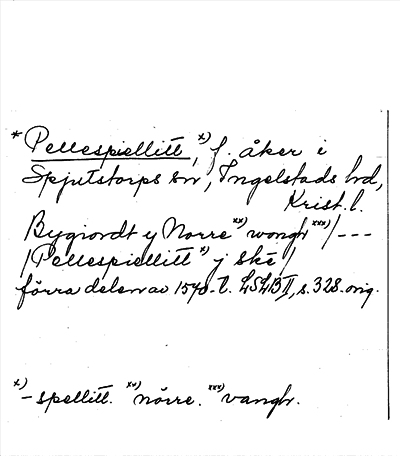 * Pellespiellitt, x) f. åker i
Spjutstorps sn, Ingelstads hd,
Krist. l.
Bygiordt y Norre xx) wongh xxx) / ---
/ Pellespiellitt x) j ske /
förra delen av 1570-t. LSLB II, s. 328. orig.
x) -spellitt. xx) nörre. xxx) vangh.